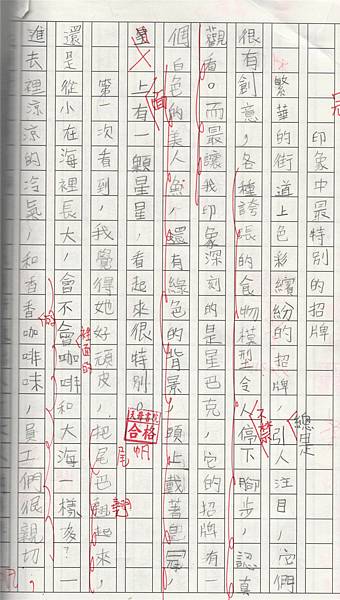 印象中最特別的招牌
繁華的街道上色彩繽紛的招牌引人注目,它們
總是
很有創意,各種誇張的食物模型令人停下腳步,認真
不禁
觀看。而最讓我印象深刻的是星巴克,它的招牌有一
個白色的美人魚,還有綠色的背景,頭上戴著皇冠,
上有一顆星星,看起來很特別。
面
合格
第一次看到,我覺得她好頑皮,把尾巴翹起來,
尾
翹
還是從小在海裡長大,會不會咖啡和大海一樣?一
裡面的
進去裡涼涼的冷氣,和香香咖啡味,員工們很親切,
的